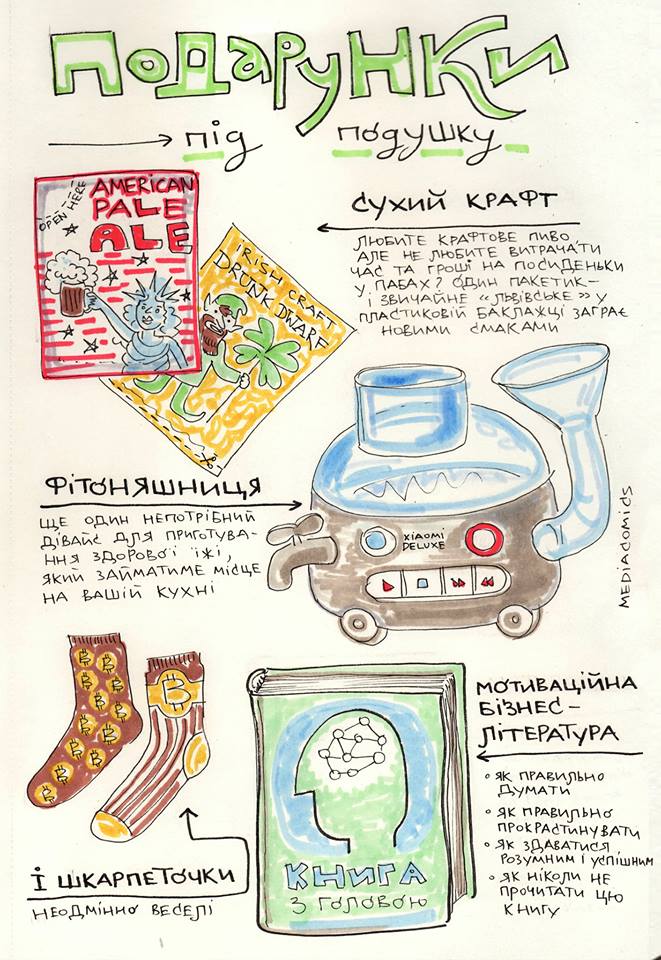 ПОДАРУНКИ
під подушку
OPEN HERE
AMERICAN
PALE
ALE
IRISH CRAFT
DRUNK DWARF
СУХИЙ КРАФТ
ЛЮБИТЕ КРАФТОВЕ ПИВО,
АЛЕ НЕ ЛЮБИТЕ ВИТРАЧАТИ
ЧАС ТА ГРОШІ НА ПОСИДЕНЬКИ
У ПАБАХ? ОДИН ПАКЕТИК –
І ЗВИЧАЙНЕ «ЛЬВІВСЬКЕ» У
ПЛАСТИКОВІЙ БАКЛАЖЦІ ЗАГРАЄ
НОВИМИ СМАКАМИ
ФІТОНЯШНИЦЯ
ЩЕ ОДИН НЕПОТРІБНИЙ
ДІВАЙС ДЛЯ ПРИГОТУВА-
ННЯ ЗДОРОВОЇ ЇЖІ,
ЯКИЙ ЗАЙМАТИМЕ МІСЦЕ
НА ВАШІЙ КУХНІ
XIAOMI
DELUXE
MEDIACOMICS
МОТИВАЦІЙНА
БІЗНЕС-
ЛІТЕРАТУРА
• ЯК ПРАВИЛЬНО
ДУМАТИ
• ЯК ПРАВИЛЬНО
ПРОКРАСТИНУВАТИ
• ЯК ЗДАВАТИСЯ
РОЗУМНИМ І УСПІШНИМ
• ЯК НІКОЛИ НЕ
ПРОЧИТАТИ ЦЮ
КНИГУ
КНИГА
З ГОЛОВОЮ
І ШКАРПЕТОЧКИ
НЕОДМІННО ВЕСЕЛІ